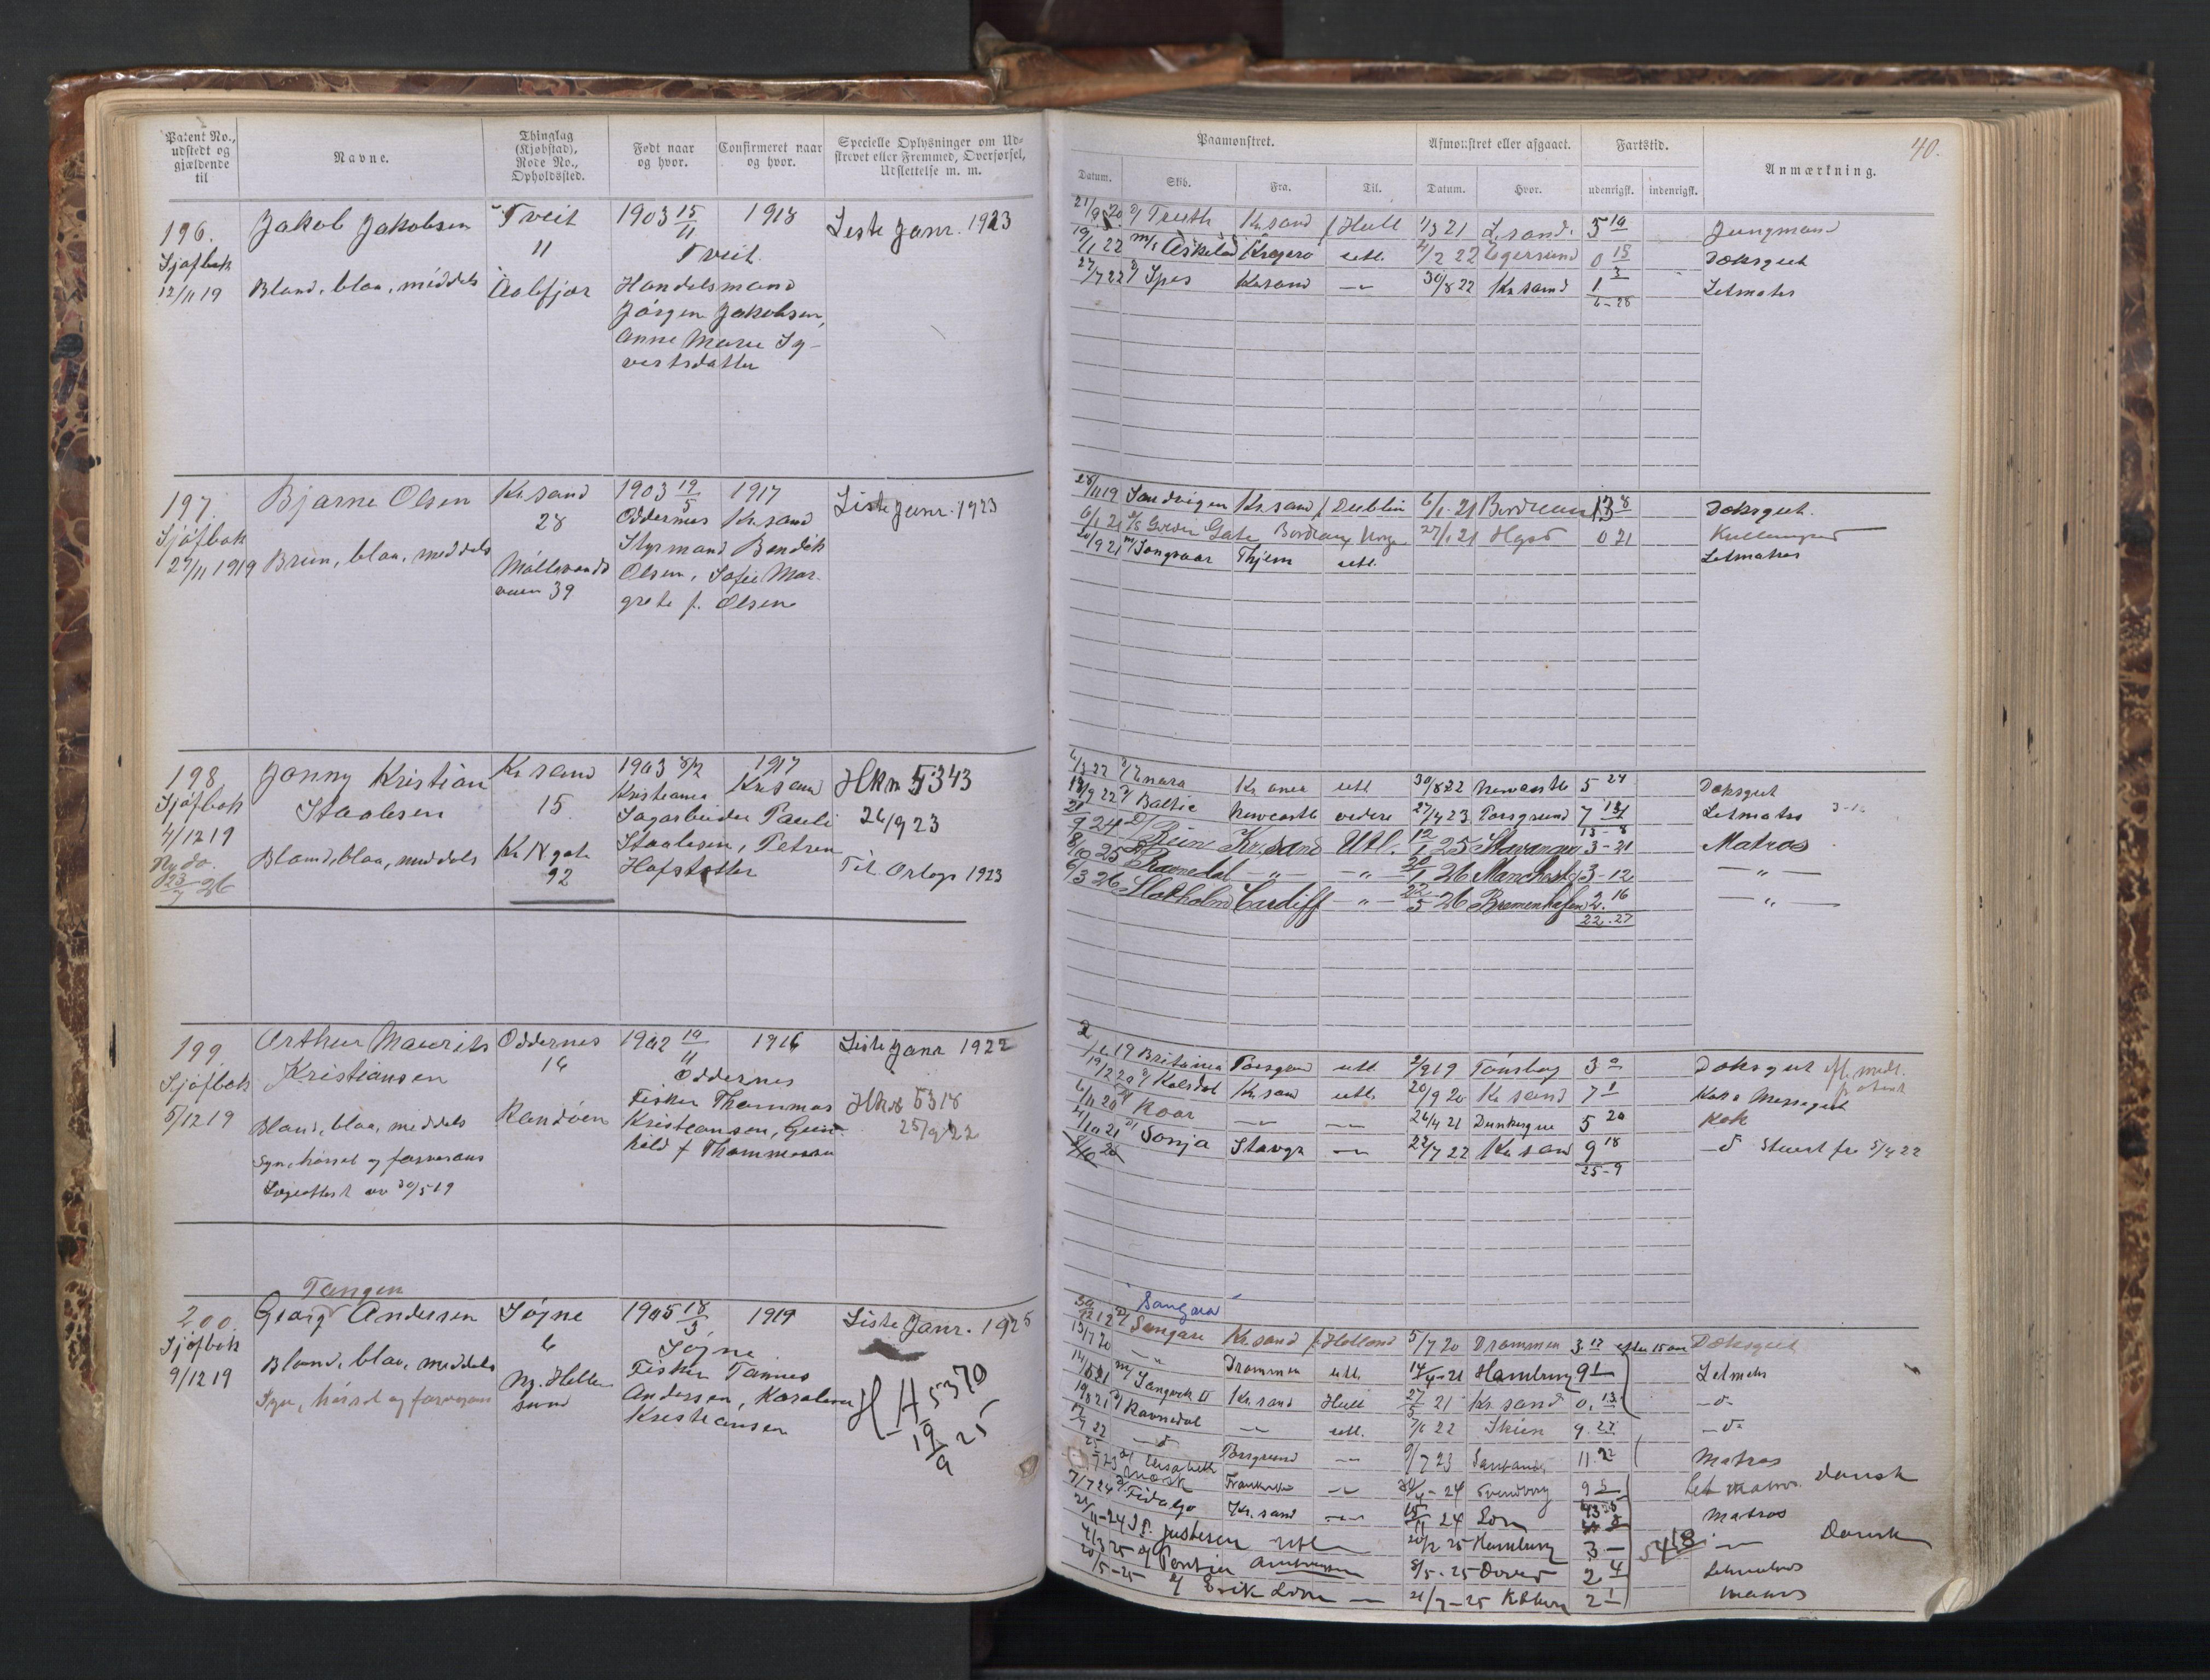 Patent No., udstedt og gjældende til
Navne.
Thinglag (Kjøbstad), Rode No., Opholdssted.
Født naar og hvor.
Confirmeret naar og hvor.
Specielle Oplysninger om Udskrevet eller Fremmed, Overførsel, Udslettelse m. m.
196.
Sjøfbok
12/11 19
Jakob Jakobsen
Blond, blaa, middels
Tveit
11
Aalefjær
1903 15/11
1918
Tveit.
Handelsmand
Jørgen Jakobsen,
Anne Marie Sy-
vertsdatter
Liste Janr. 1923
197.
Sjøfbok
27/11 1919
Bjarne Olsen
Brun, blaa, middels
Kr.sand
28
Møllevands
veien 39
1903 19/5
1917
Oddernes
Kr.sand
Styrmand Bendik
Olsen, Sofie Mar-
grete f. Olsen
Liste Janr. 1923
198.
Sjøfbok
4/12 19
Ny do.
23/7 26
Jonny Kristian
Staalesen
Blond, blaa, middels
Kr.sand
15
Kr IV gate
92
1903 8/2
1917
Kristiania
Kr.sand
Sagarbeider Pauli
Staalesen, Petren
Hofstøtter
Hkm 5343
26/9 23
Til Orlogs 1923
199.
Sjøfbok
5/12 19
Arthur Maurits
Kristiansen
Blond, blaa, middels
Syn, hørsel og farvesans
Lægeattest av 30/5 19
Oddernes
14
Randøen
1902 10/11
1916
Oddernes
Fisker Thommas
Kristiansen, Gun-
hild f Thommesen
Liste Janr 1922
Hkm 5318
25/9 22
Tangen
200.
Sjøfbok
9/12 19
Georg Andersen
Blond, blaa, middels
Syn, hørsel og farvesans
Søgne
6
Ny. Helle
sund
1905 18/3
1919
Søgne
Fisker Tønnes
Andersen, Karoline
Kristiansen
Liste Janr. 1925
H H 5370
19/9 25
40.
Paamønstret.
Afmønstret eller afgaaet.
Fartstid.
Anmærkning.
Datum.
Skib.
Fra.
Til.
Datum.
Hvor.
udenrigsk.
indenrigsk.
21/9 20 Truth Kr.sand f Hull 1/3 21 5 10 Jungmand
19/1 22 m/s Askelad Kragerø utl. 2/2 22 Egersund 0 15 Dæksgut
27/7 22 Spes Kr.sand -"- 30/8 22 Kr.sand 1 3 Letmatros
6-28
28/11 19 Sandvigen Kr.sand f Dublin 6/1 21 Bordeaux 13 8 Dæksgut.
6/1 21 Golden Gate Bordeaux Norge 27/1 21 0 21 Kullemper
20/9 21 m/s Songvaar utl. Letmatros
6/3 22 Enara Kr.ania utl 30/8 22 Newcastle 5 24 Dæksgut
19/9 22 Baltic Newcastle videre 27/4 23 Porsgrund 7 Letmatros
13-8
9 24 Rein Kr.sand Utl. 12/1 25 Stavanger 3-21 Matros
8/10 25 Ravnedal -"- -"- 20/1 26 Manchester 3-12 -"-
6/3 26 Stokholm Cardiff -"- 22/5 26 Bremerhafen 2.16 -"-
22-27
19 Britannia Porsgrund utl. 2/9 19 Tønsberg 3 Dæksgut
19/2 20 Kalsdal Kr.sand utl. 20/9 20 Kr sand 7 1 Messegut
6/11 20 Roar -"- -"- 26/4 21 Dunkerque 5 20 Kok
4/10 21 Sonja Stavgr -"- 22/7 22 Kr.sand 9 18 -d- Stuert fra 5/4 22
25-9
Sangara
30/12 19 Sangare Kr.sand f. Holland 5/7 20 Drammen 3.17 efter 15 aar Dæksgut
13/7 20 -"- Drammen utl. 14/4-21 Hamburg 9 1 Letmatros
14/5 21 m/s Sangvik II Kr.sand Hull 27/5 21 Kr.sand 0. 13 -d-
19/8 21 Ravnedal -"- utl. 7/6 22 Skien 9.27 -d-
22 -d- Porsgrund -"- 9/7 23 11.22 Matros
23 Elisabeth Mærsk -"- 24 Svendborg 9 Let matros. dansk
7/7 24 Fidalgo Kr.sand -"- 15/11 24 Matros
24 J.P. Justesen utl 20/2 25 Hamburg 3 - 54 18 -"- Dansk
4/3 25 8/5-25 Dover 2 4 Letmatros
20/5-25 Erik -"- 21/7-25 Kbhvn 2 1 Matros